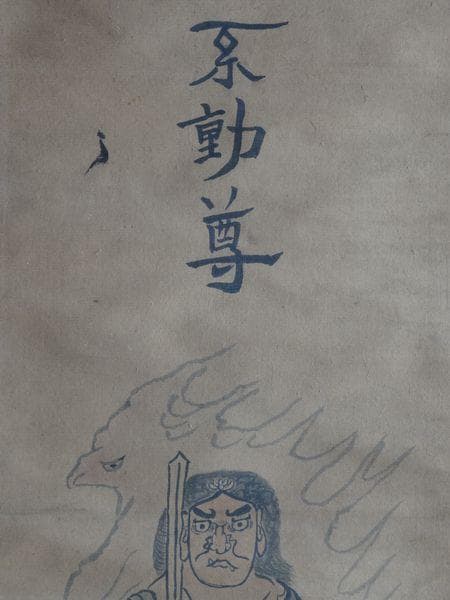 不動尊